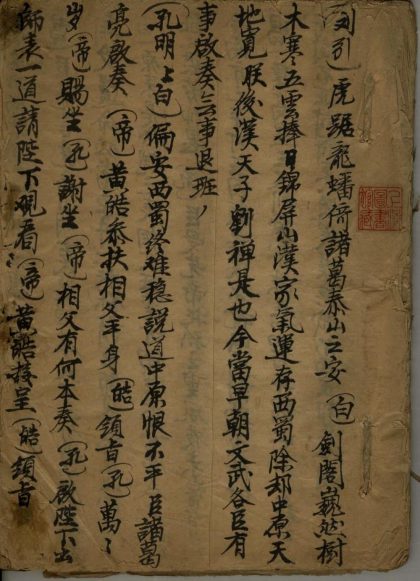 (引)虎踞龍蟠術諸葛泰山之安(白)劍閣巍然樹
木寒五雲捧日錦屏山漢家氣運存西蜀除却中原天
地寬朕後漢天子劉禅是也今當早朝文武各臣有
事啟奏无事退班
(孔明上白)偏安西蜀终难稳説道中原恨不平臣諸葛
亮啟奏(帝)黄皓叅扶相父平身(皓)領旨(孔)萬〻
岁(帝)賜坐(孔)謝坐(帝)相父有何本奏(孔)啟陛下出
師表一道請陛下观看(帝)黄皓接呈(皓)領旨